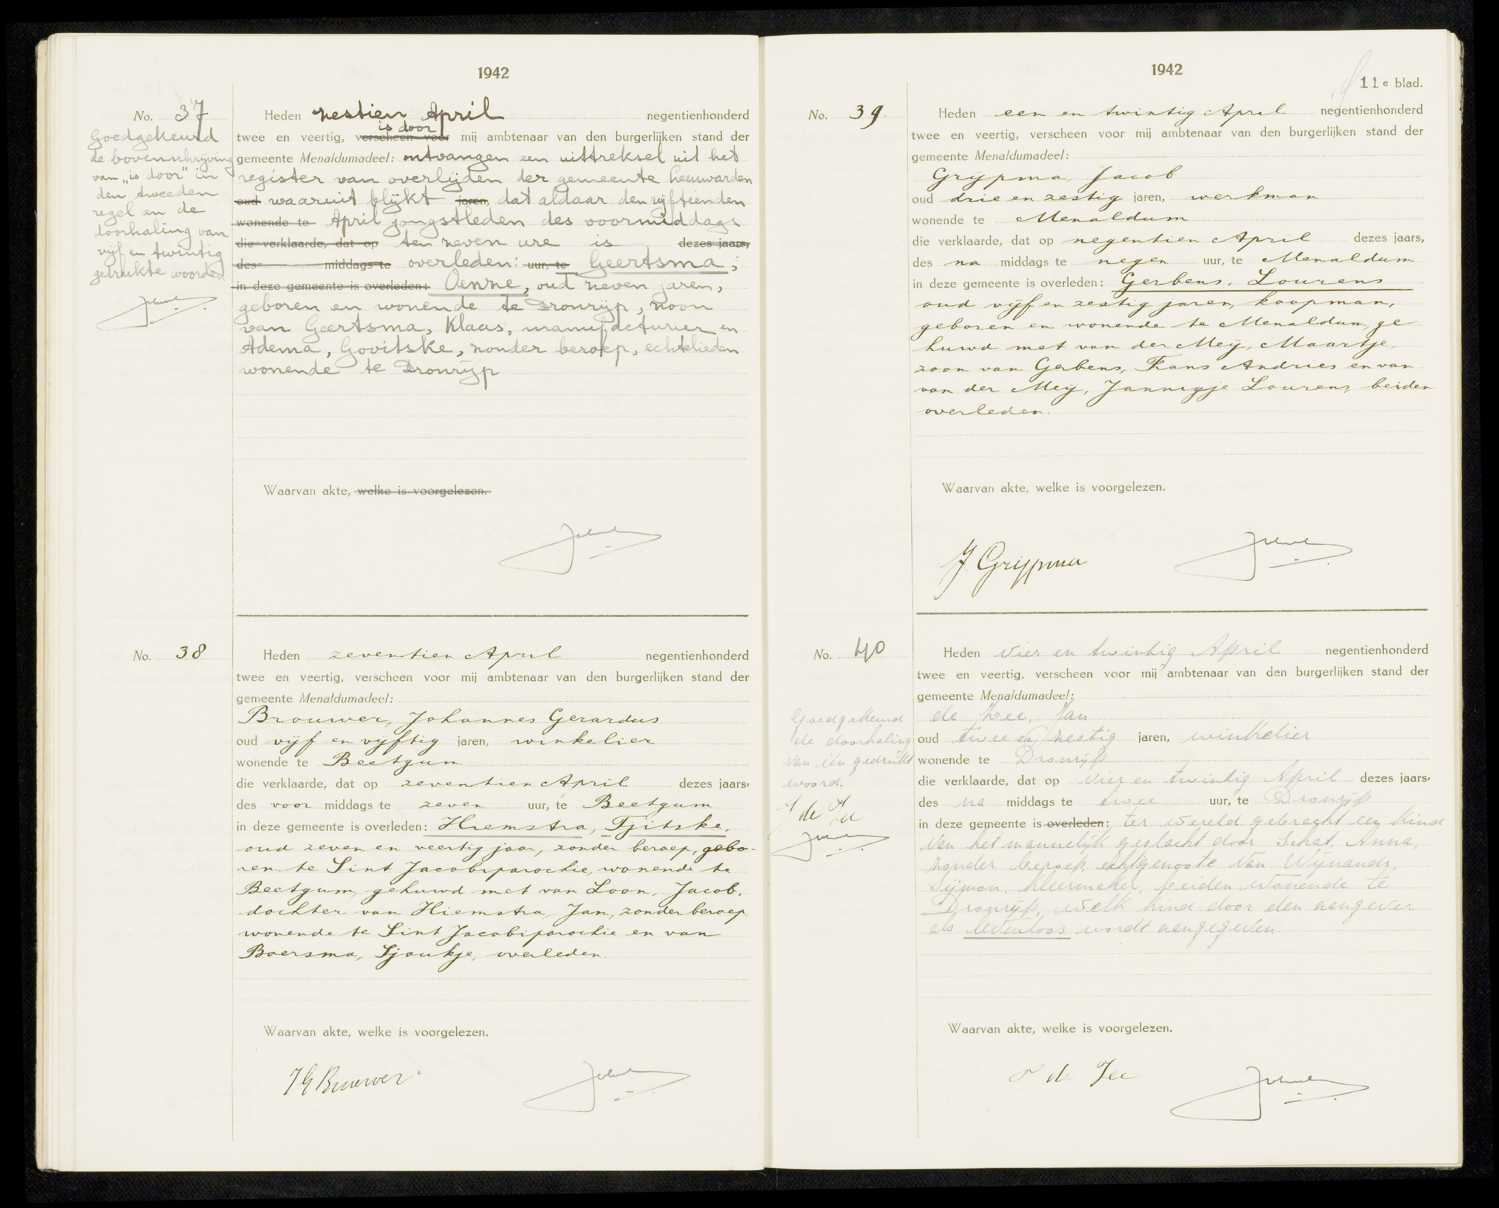 1942
No. 37
Goedgekeurd
de bovenschrijving
van „is door" in
den tweeden
regel en de
doorhaling van
vijf en twintig
gedrukte woorden
Heden zestien April negentienhonderd
is door
twee en veertig, verscheen voor mij ambtenaar van den burgerlijken stand der
gemeente Menaldumadeel: ontvangen een uittreksel uit het
register van overlijden der gemeente Leeuwarden
oud waaruit blijkt jaren, dat aldaar den vijftienden
wonende te April jongstleden des voormiddags
die verklaarde, dat op ten zeven ure is dezes jaars,
des middags te overleden: uur, te Geertsma,
in deze gemeente is overleden: Oenne, oud zeven jaren,
geboren en wonende te Dronrijp, zoon
van Geertsma, Klaas, manufacturier en
Adema, Govitske, zonder beroep, echtelieden
wonende te Dronrijp
Waarvan akte, welke is voorgelezen.
No. 38
Heden zeventien April negentienhonderd
twee en veertig, verscheen voor mij ambtenaar van den burgerlijken stand der
gemeente Menaldumadeel:
Brouwer, Johannes Gerardus
oud vijf en vijftig jaren, winkelier
wonende te Beetgum
die verklaarde, dat op zeventien April dezes jaars,
des voor middags te zeven uur, te Beetgum
in deze gemeente is overleden: Hiemstra, Tjitske,
oud zeven en veertig jaar, zonder beroep, gebo-
ren te Sint Jacobiparochie, wonende te
Beetgum, gehuwd met van Loon, Jacob,
dochter van Hiemstra, Jan, zonder beroep
wonende te Sint Jacobiparochie en van
Boersma, Sjoukje, overleden.
Waarvan akte, welke is voorgelezen.
JG Brouwer
1942
11e blad.
No. 39
Heden een en twintig April negentienhonderd
twee en veertig, verscheen voor mij ambtenaar van den burgerlijken stand der
gemeente Menaldumadeel:
Grijpma, Jacob
oud drie en zestig jaren, werkman
wonende te Menaldum
die verklaarde, dat op negentien April dezes jaars,
des na middags te negen uur, te Menaldum
in deze gemeente is overleden: Gerbens, Lourens
oud vijf en zestig jaren, koopman,
geboren en wonende te Menaldum, ge-
huwd met van der Meij, Maartje,
zoon van Gerbens, Frans Andries en van
van der Meij, Jannigje Lourens, beiden
overleden.
Waarvan akte, welke is voorgelezen.
J Grijpma
No. 40
Goedgekeurd
de doorhaling
van één gedrukt
woord.
J de Zee
Heden vier en twintig April negentienhonderd
twee en veertig, verscheen voor mij ambtenaar van den burgerlijken stand der
gemeente Menaldumadeel:
de Zee, Jan
oud twee en zestig jaren, winkelier
wonende te Dronrijp
die verklaarde, dat op vier en twintig April dezes jaars,
des na middags te twee uur, te Dronrijp
in deze gemeente is overleden: ter wereld gebracht een kind
van het mannelijk geslacht door Schat, Anna,
zonder beroep, echtgenoote van Wijnands,
Sijmon, beiden wonende te
Dronrijp, welk kind door den aangever
als levenloos wordt aangegeven
Waarvan akte, welke is voorgelezen.
J de Zee